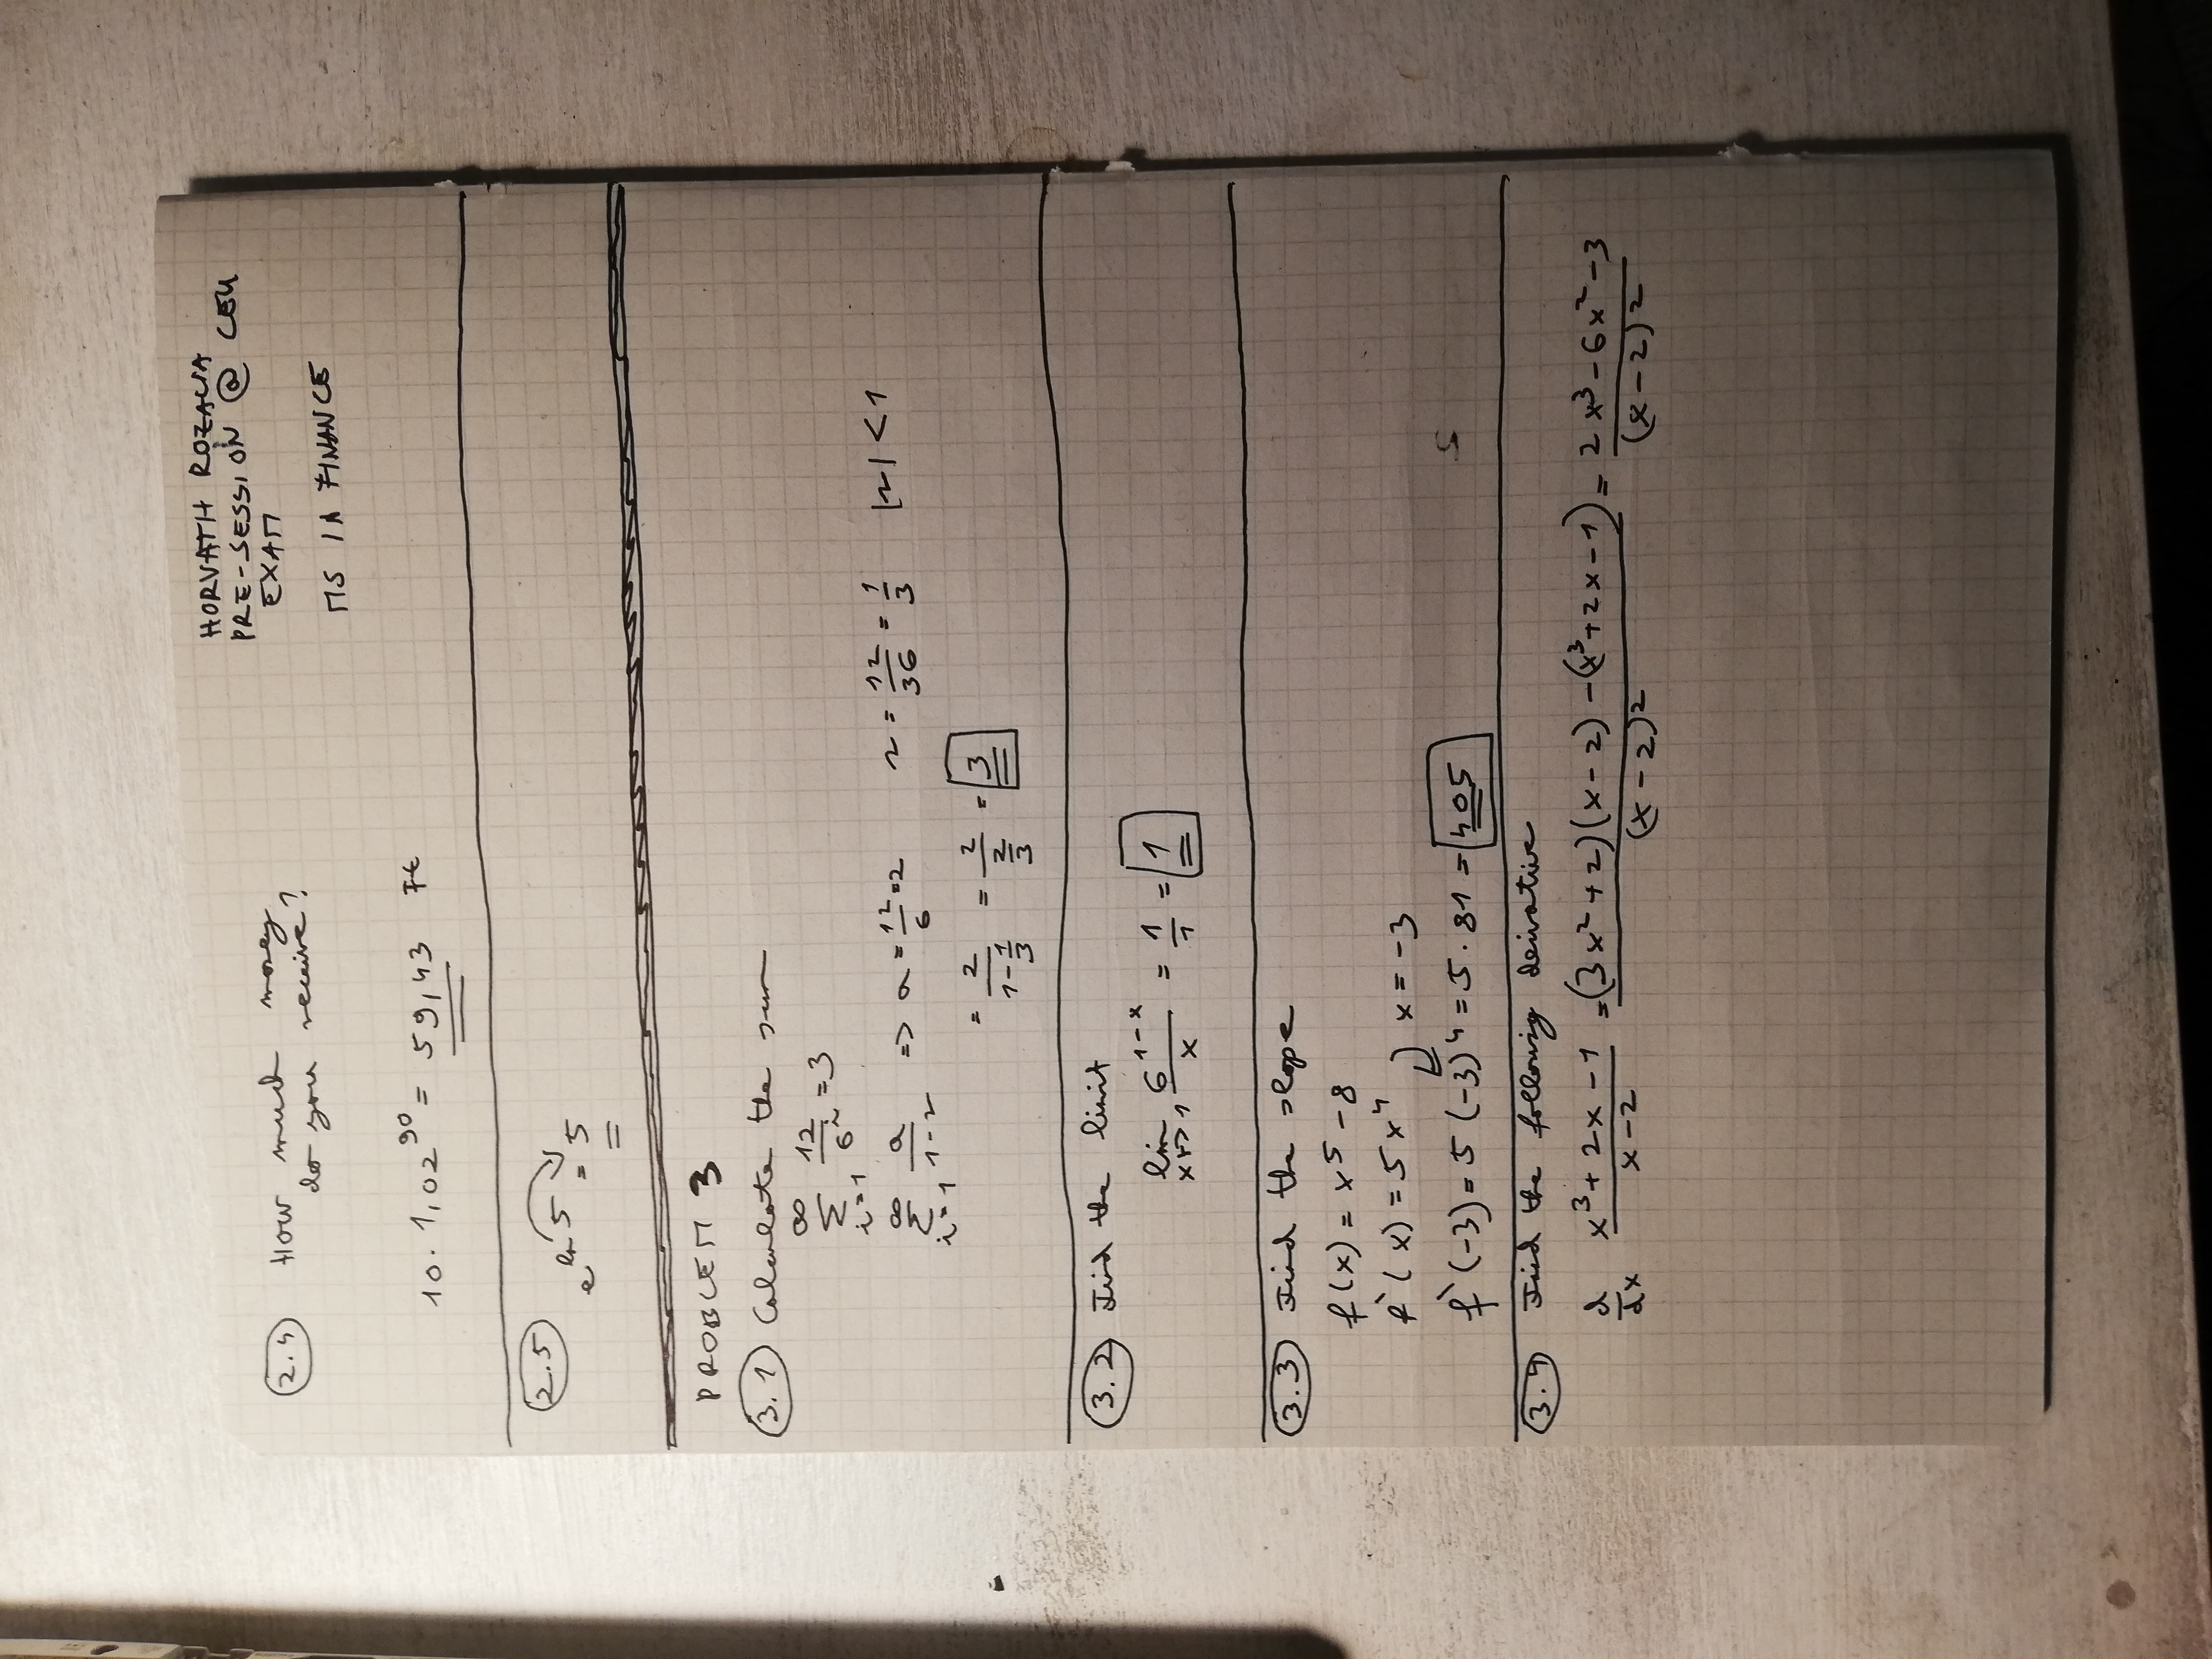 HORVATH ROZALIA
PRE-SESSION @ CEU
EXAM
MS IN FINANCE
2.4 How much money
do you receive?
10 · 1,02^90 = 59,43 Ft
2.5
e^ln 5 = 5
PROBLEM 3
3.1 Calculate the sum
∞ Σ i=1 12/6^i = 3
∞ Σ i=1 a/1-r => a = 12/6 = 2 r = 12/36 = 1/3 |r| < 1
= 2/(1-1/3) = 2/(2/3) = 3
3.2 Find the limit
lim x→1 6^(1-x)/x = 1/1 = 1
3.3 Find the slope
f(x) = x^5 - 8
f`(x) = 5x^4 x = -3
f`(-3) = 5(-3)^4 = 5 · 81 = 405
3.4 Find the following derivative
d/dx (x^3+2x-1)/(x-2) = ((3x^2+2)(x-2) - (x^3+2x-1))/(x-2)^2 = (2x^3-6x^2-3)/(x-2)^2